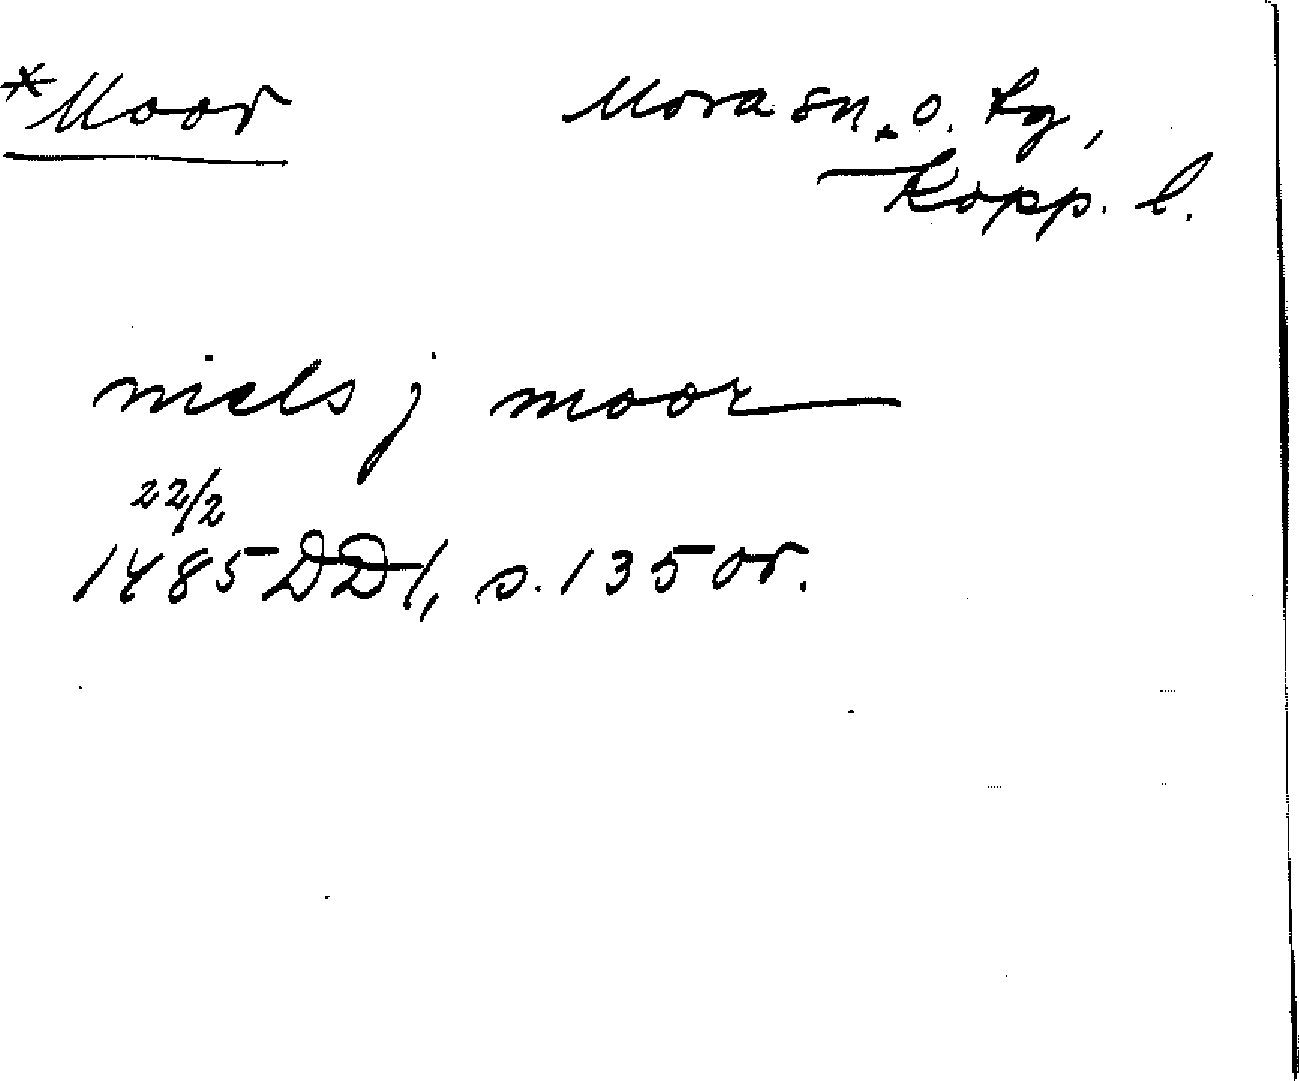 *Moor Mora sn. o. kg,
Kopp. l.
niels j moor
22/2
1485 DD1, s. 135 or.